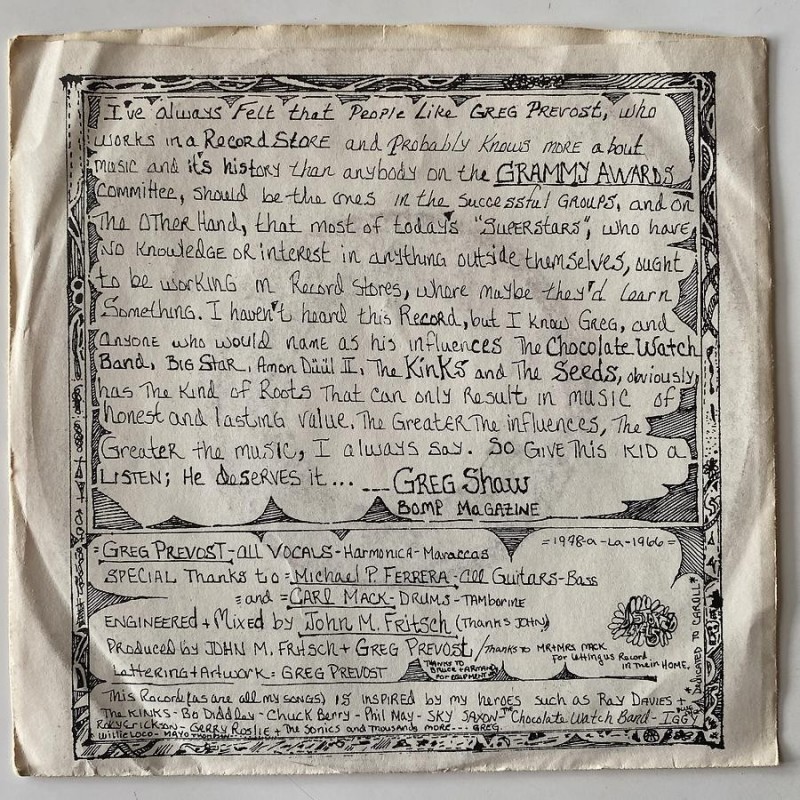 I've always Felt that People Like GREG PREVOST, who
works in a Record Store and probably Knows more about
music and it's history than anybody on the GRAMMY AWARDS
Committee, should be the ones in the successful GROUPS, and on
The OTHER Hand, that most of today's "SUPERSTARS", who have
NO KNOWLEDGE OR interest in anything outside themselves, ought
to be working in Record stores, where maybe they'd learn
Something. I haven't heard this Record, but I Know Greg, and
anyone who would name as his influences The Chocolate Watch
Band, Big Star, Amon Düül II, The Kinks and The Seeds, obviously
has The Kind of Roots That can only Result in music of
honest and lasting value. The Greater The influences, The
Greater the music, I always say. So Give This KID a
LISTEN; He deserves it... ___GREG Shaw
BOMP MAGAZINE
=GREG PREVOST-all VOCALS-Harmonica-Maraccas
=1978-a-La-1966=
SPECIAL Thanks to =Michael P. FERRERA-all Guitars-Bass
=and =CARL MACK-DRUMS-TAMBORINE
ENGINEERED + Mixed by John M. Fritsch (Thanks JOHN)
Produced by JOHN M. FRITSCH + GREG PREVOST/Thanks to MR+MRS MACK
For Letting us Record
in Their HOME.
Lettering + Artwork = GREG PREVOST
THANKS TO
FOR EQUIPMENT
*DEDICATED TO CAROLL*
This Record (as are all my songs) is inspired by my heroes such as Ray Davies +
The KINKS - Bo Diddley - Chuck Berry - Phil May - SKY SAXON - The Chocolate Watch Band - IGGY
Roky Erickson - Gerry Roslie + The Sonics and Thousands MORE... GREG.
Willie Loco - MAYO